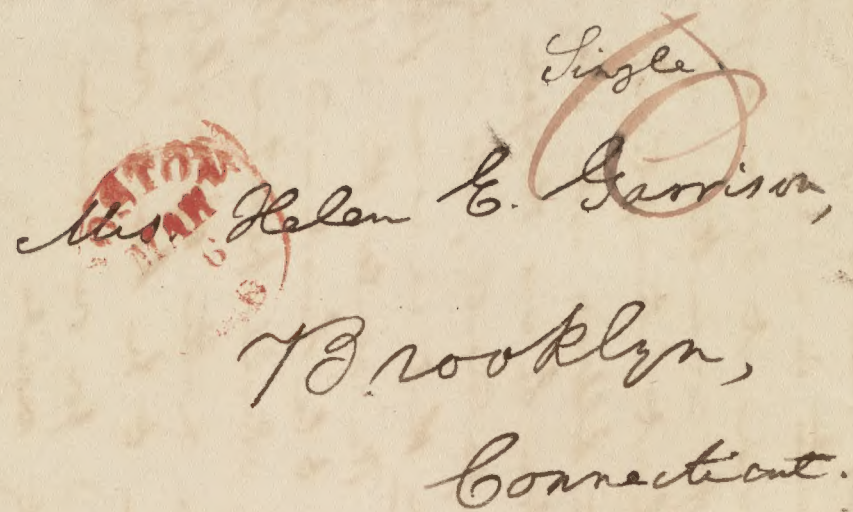 Single.
BOSTON
MAR
6
MS
Mrs. Helen E. Garrison,
Brooklyn,
Connecticut.